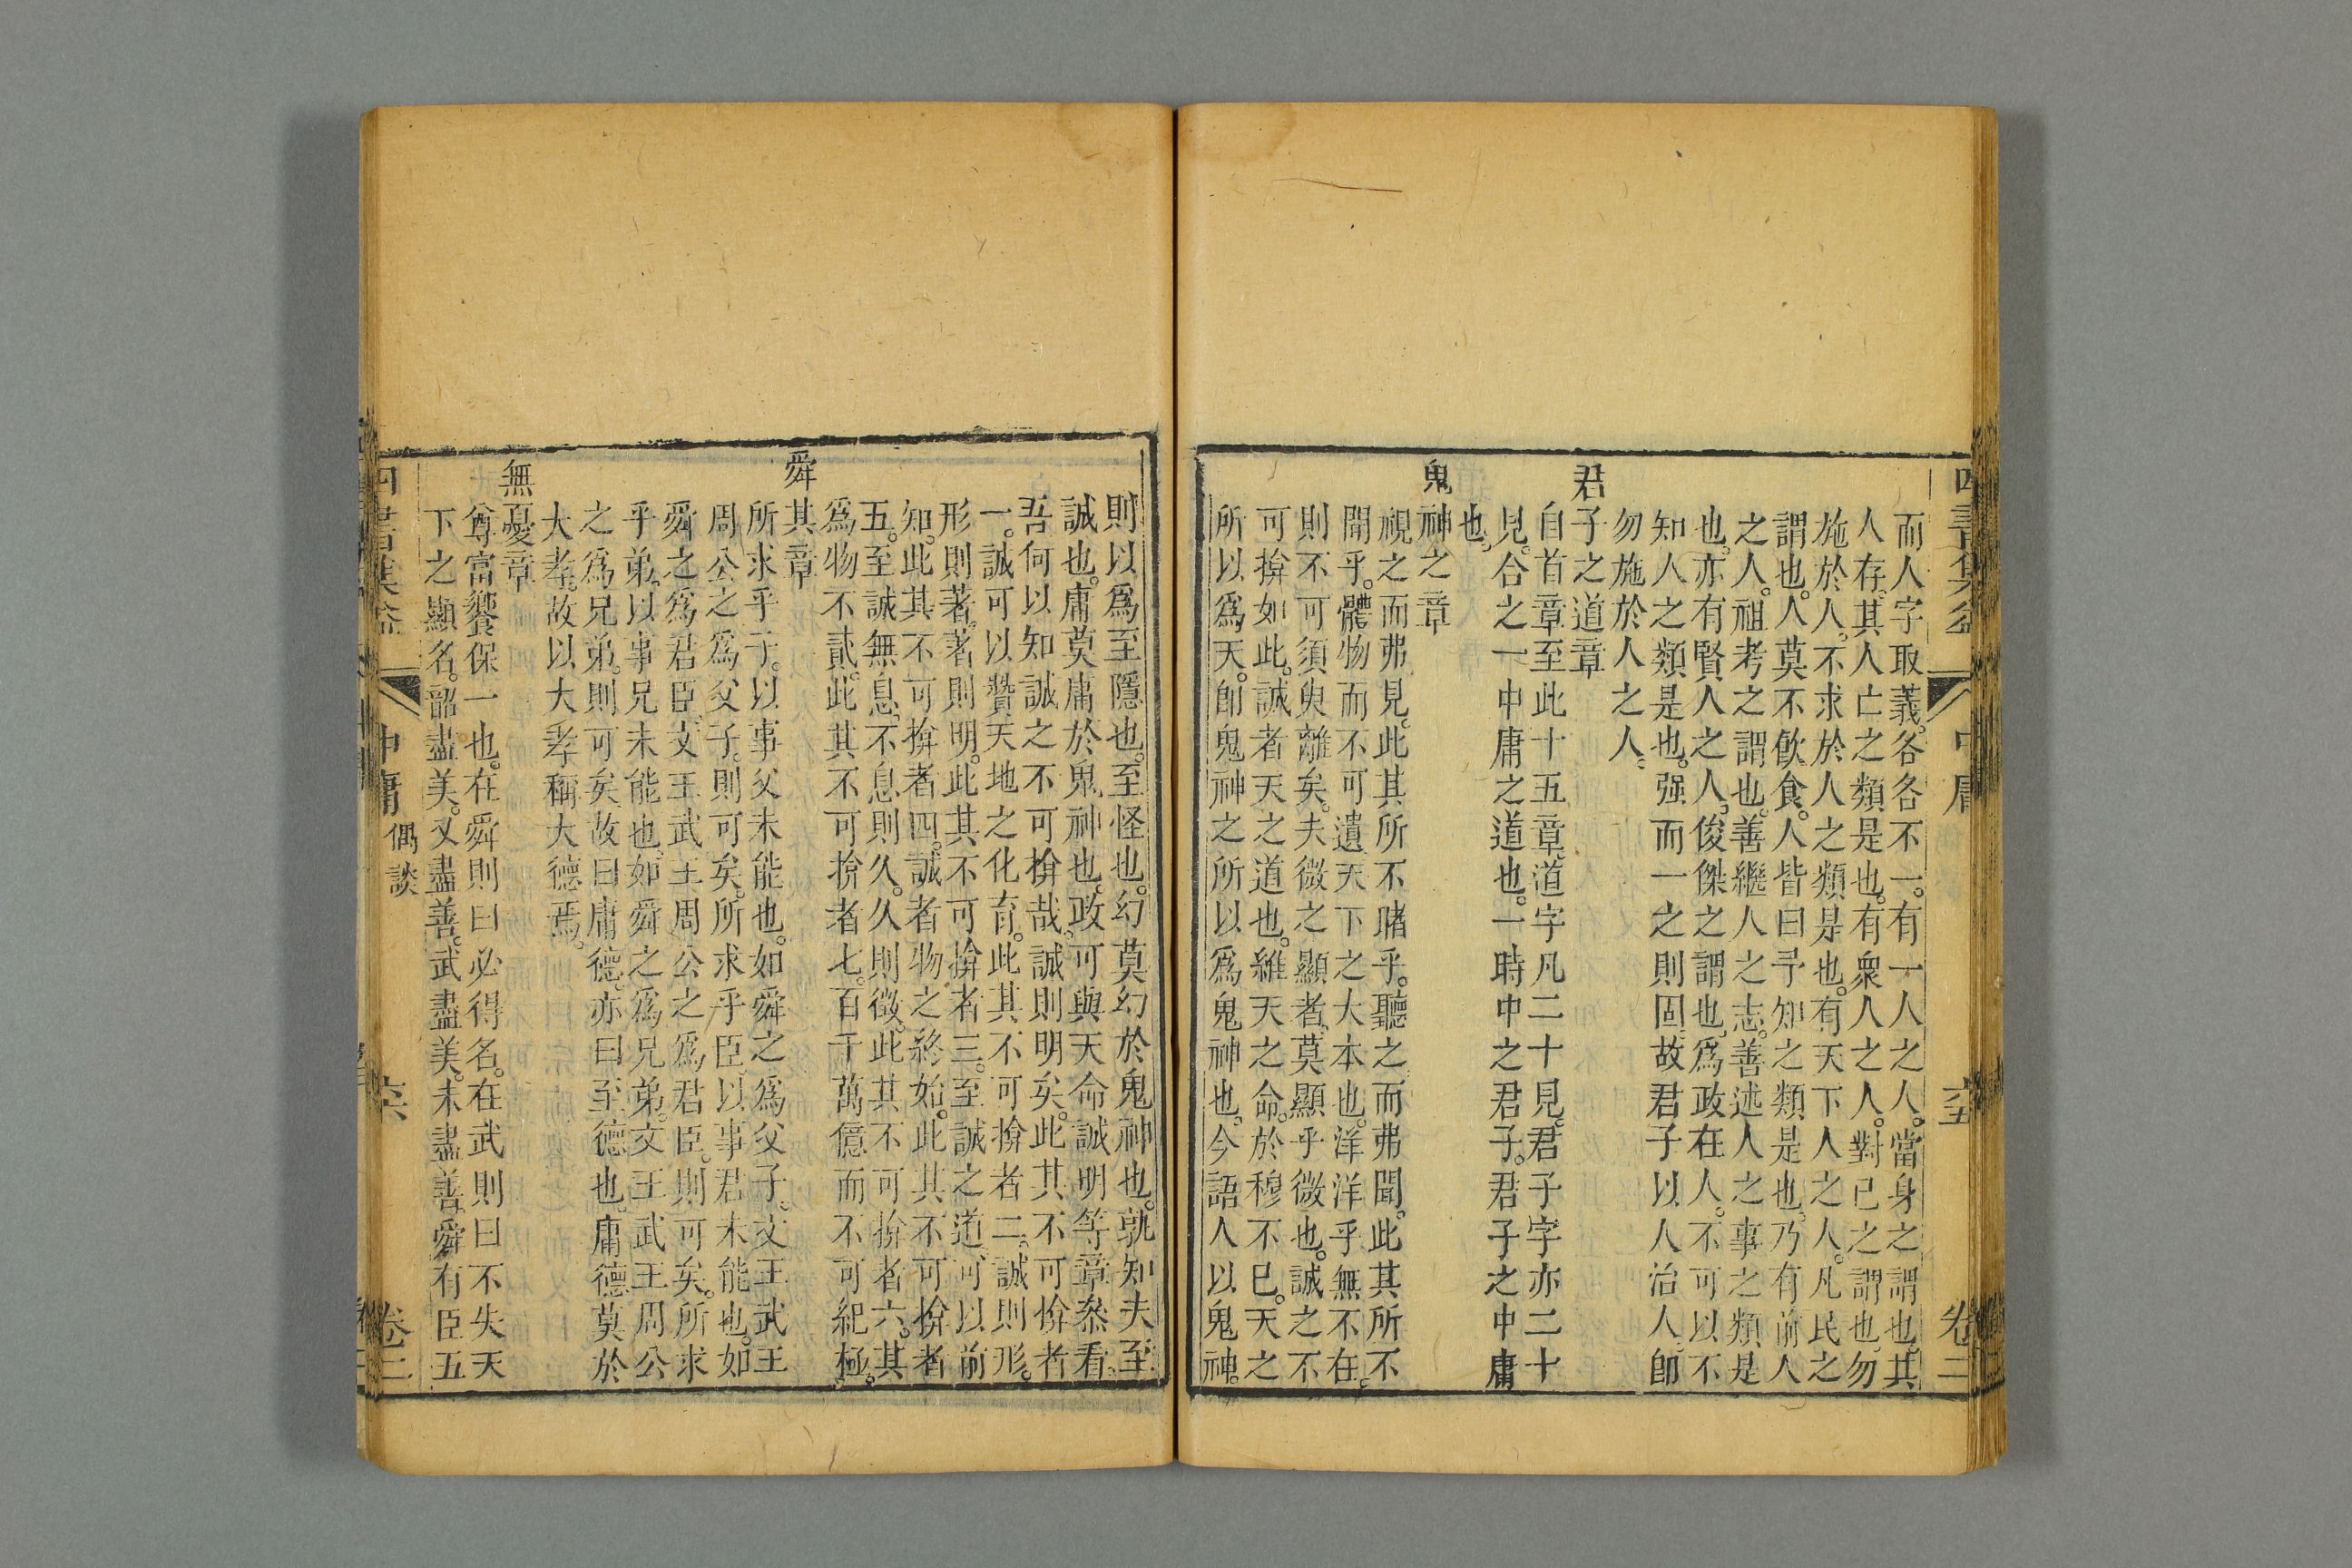 而人字取義各各不一。有一人之人。當身之謂也。其
人存。其人亡之類是也。有衆人之人。對已之謂也。勿
施於人。不求於人之類是也。有天下人之人。凡民之
謂也。人莫不飲食。人皆曰予知之類是也。乃有前人
之人。祖考之謂也。善繼人之志。善述人之事之類是
也。亦有賢人之人。俊傑之謂也。爲政在人。不可以不
知人之類是也。强而一之則固。故君子以人治人。卽
勿施於人之人。
君子之道章
自首章至此十五章。道字凡二十見。君子字亦二十
見。合之一中庸之道也。一時中之君子。君子之中庸
也。
鬼神之章
視之而弗見。此其所不睹乎。聽之而弗聞。此其所不
聞乎。體物而不可遺。天下之大本也。洋洋乎無不在。
則不可須臾離矣。夫微之顯者。莫顯乎微也。誠之不
可揜如此。誠者天之道也。維天之命。於穆不已。天之
所以爲天。卽鬼神之所以爲鬼神也。今語人以鬼神。
則以爲至隱也。至怪也。幻莫幻於鬼神也。孰知夫至
誠也。庸莫庸於鬼神也。政可與天命誠明等章叅看。
吾何以知誠之不可揜哉。誠則明矣。此其不可揜者
一。誠可以贊天地之化育。此其不可揜者二。誠則形。
形則著。著則明。此其不可揜者三。至誠之道。可以前
知。此其不可揜者四。誠者物之終始。此其不可揜者
五。至誠無息。不息則久。久則徵。此其不可揜者六。其
爲物不貳。此其不可揜者七。百千萬億而不可紀極。
舜其章
所求乎子。以事父未能也。如舜之爲父子。文王武王
周公之爲父子。則可矣。所求乎臣。以事君未能也。如
舜之爲君臣。文王武王周公之爲君臣。則可矣。所求
乎弟。以事兄未能也。如舜之爲兄弟。文王武王周公
之爲兄弟。則可矣。故曰庸德。亦曰至德也。庸德莫於
大孝。故以大孝稱大德焉。
無憂章
尊富饗保一也。在舜則曰必得名。在武則曰不失天
下之顯名。韶盡美。又盡善。武盡美。未盡善。舜有臣五
中庸 偶談 六六 卷二